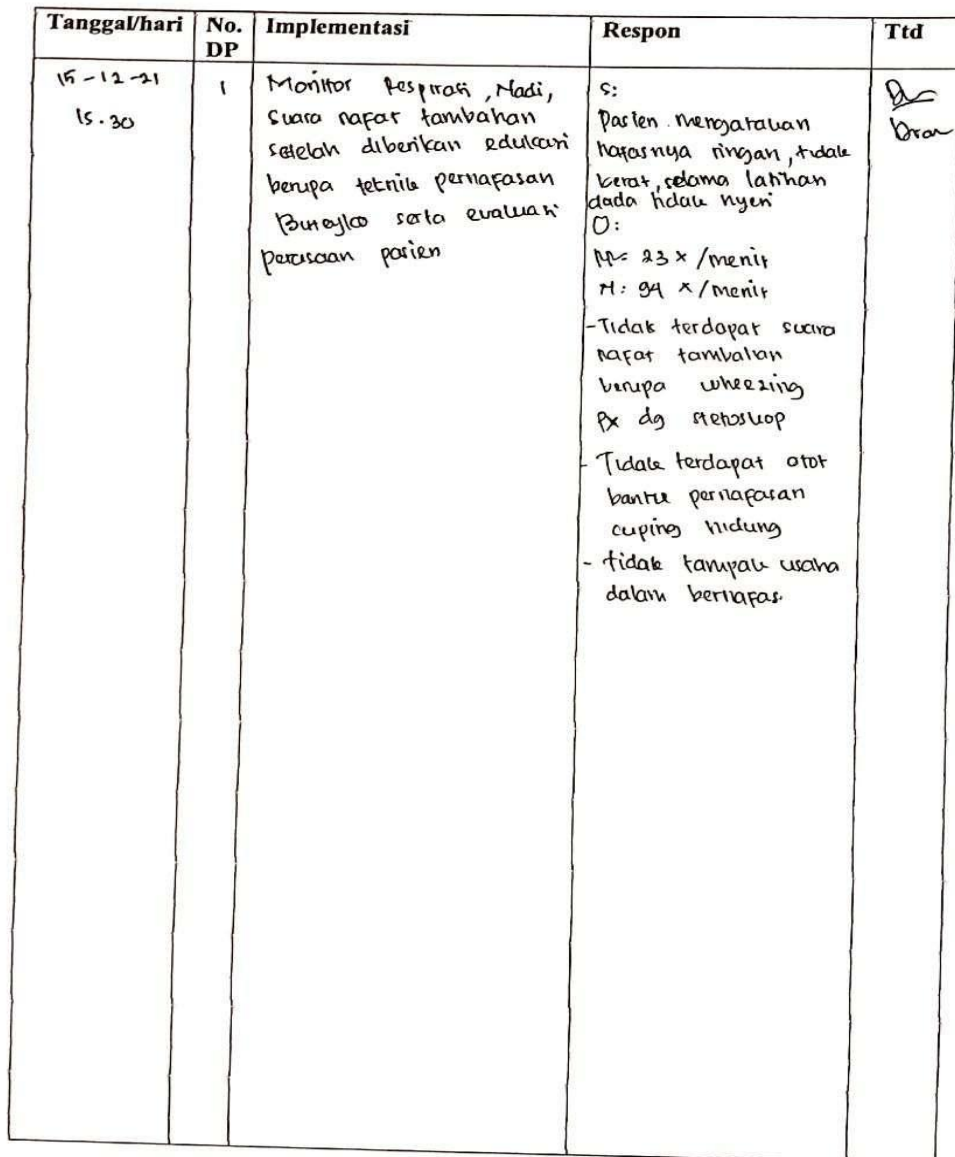 Tanggal/hari
No. DP
Implementasi
Respon
Ttd
15-12-21
15.30
1
Monitor Respirasi, Nadi,
suara nafas tambahan
setelah diberikan edukasi
berupa teknik pernafasan
Buteyko serta evaluasi
perasaan pasien
S:
Pasien mengatakan
nafasnya ringan, tidak
berat, selama latihan
dada tidak nyeri
O:
23 x/menit
N: 94 x/menit
-Tidak terdapat suara
nafas tambahan
berupa wheezing
Px dg stetoskop
- Tidak terdapat otot
bantu pernafasan
cuping hidung
- tidak tampak usaha
dalam bernafas.